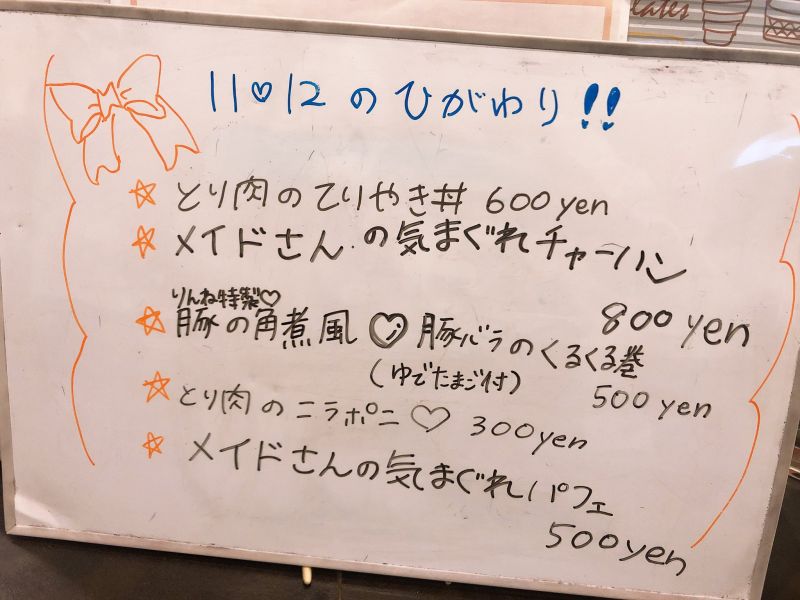 lates
11♡12のひがわり!!
☆とり肉のてりやき丼 600yen
☆メイドさんの気まぐれチャーハン
800yen
りんね特製♡
☆豚の角煮風♡豚バラのくるくる巻
(ゆでたまご付) 500yen
☆とり肉のニラポニ♡ 300yen
☆メイドさんの気まぐれパフェ
500yen